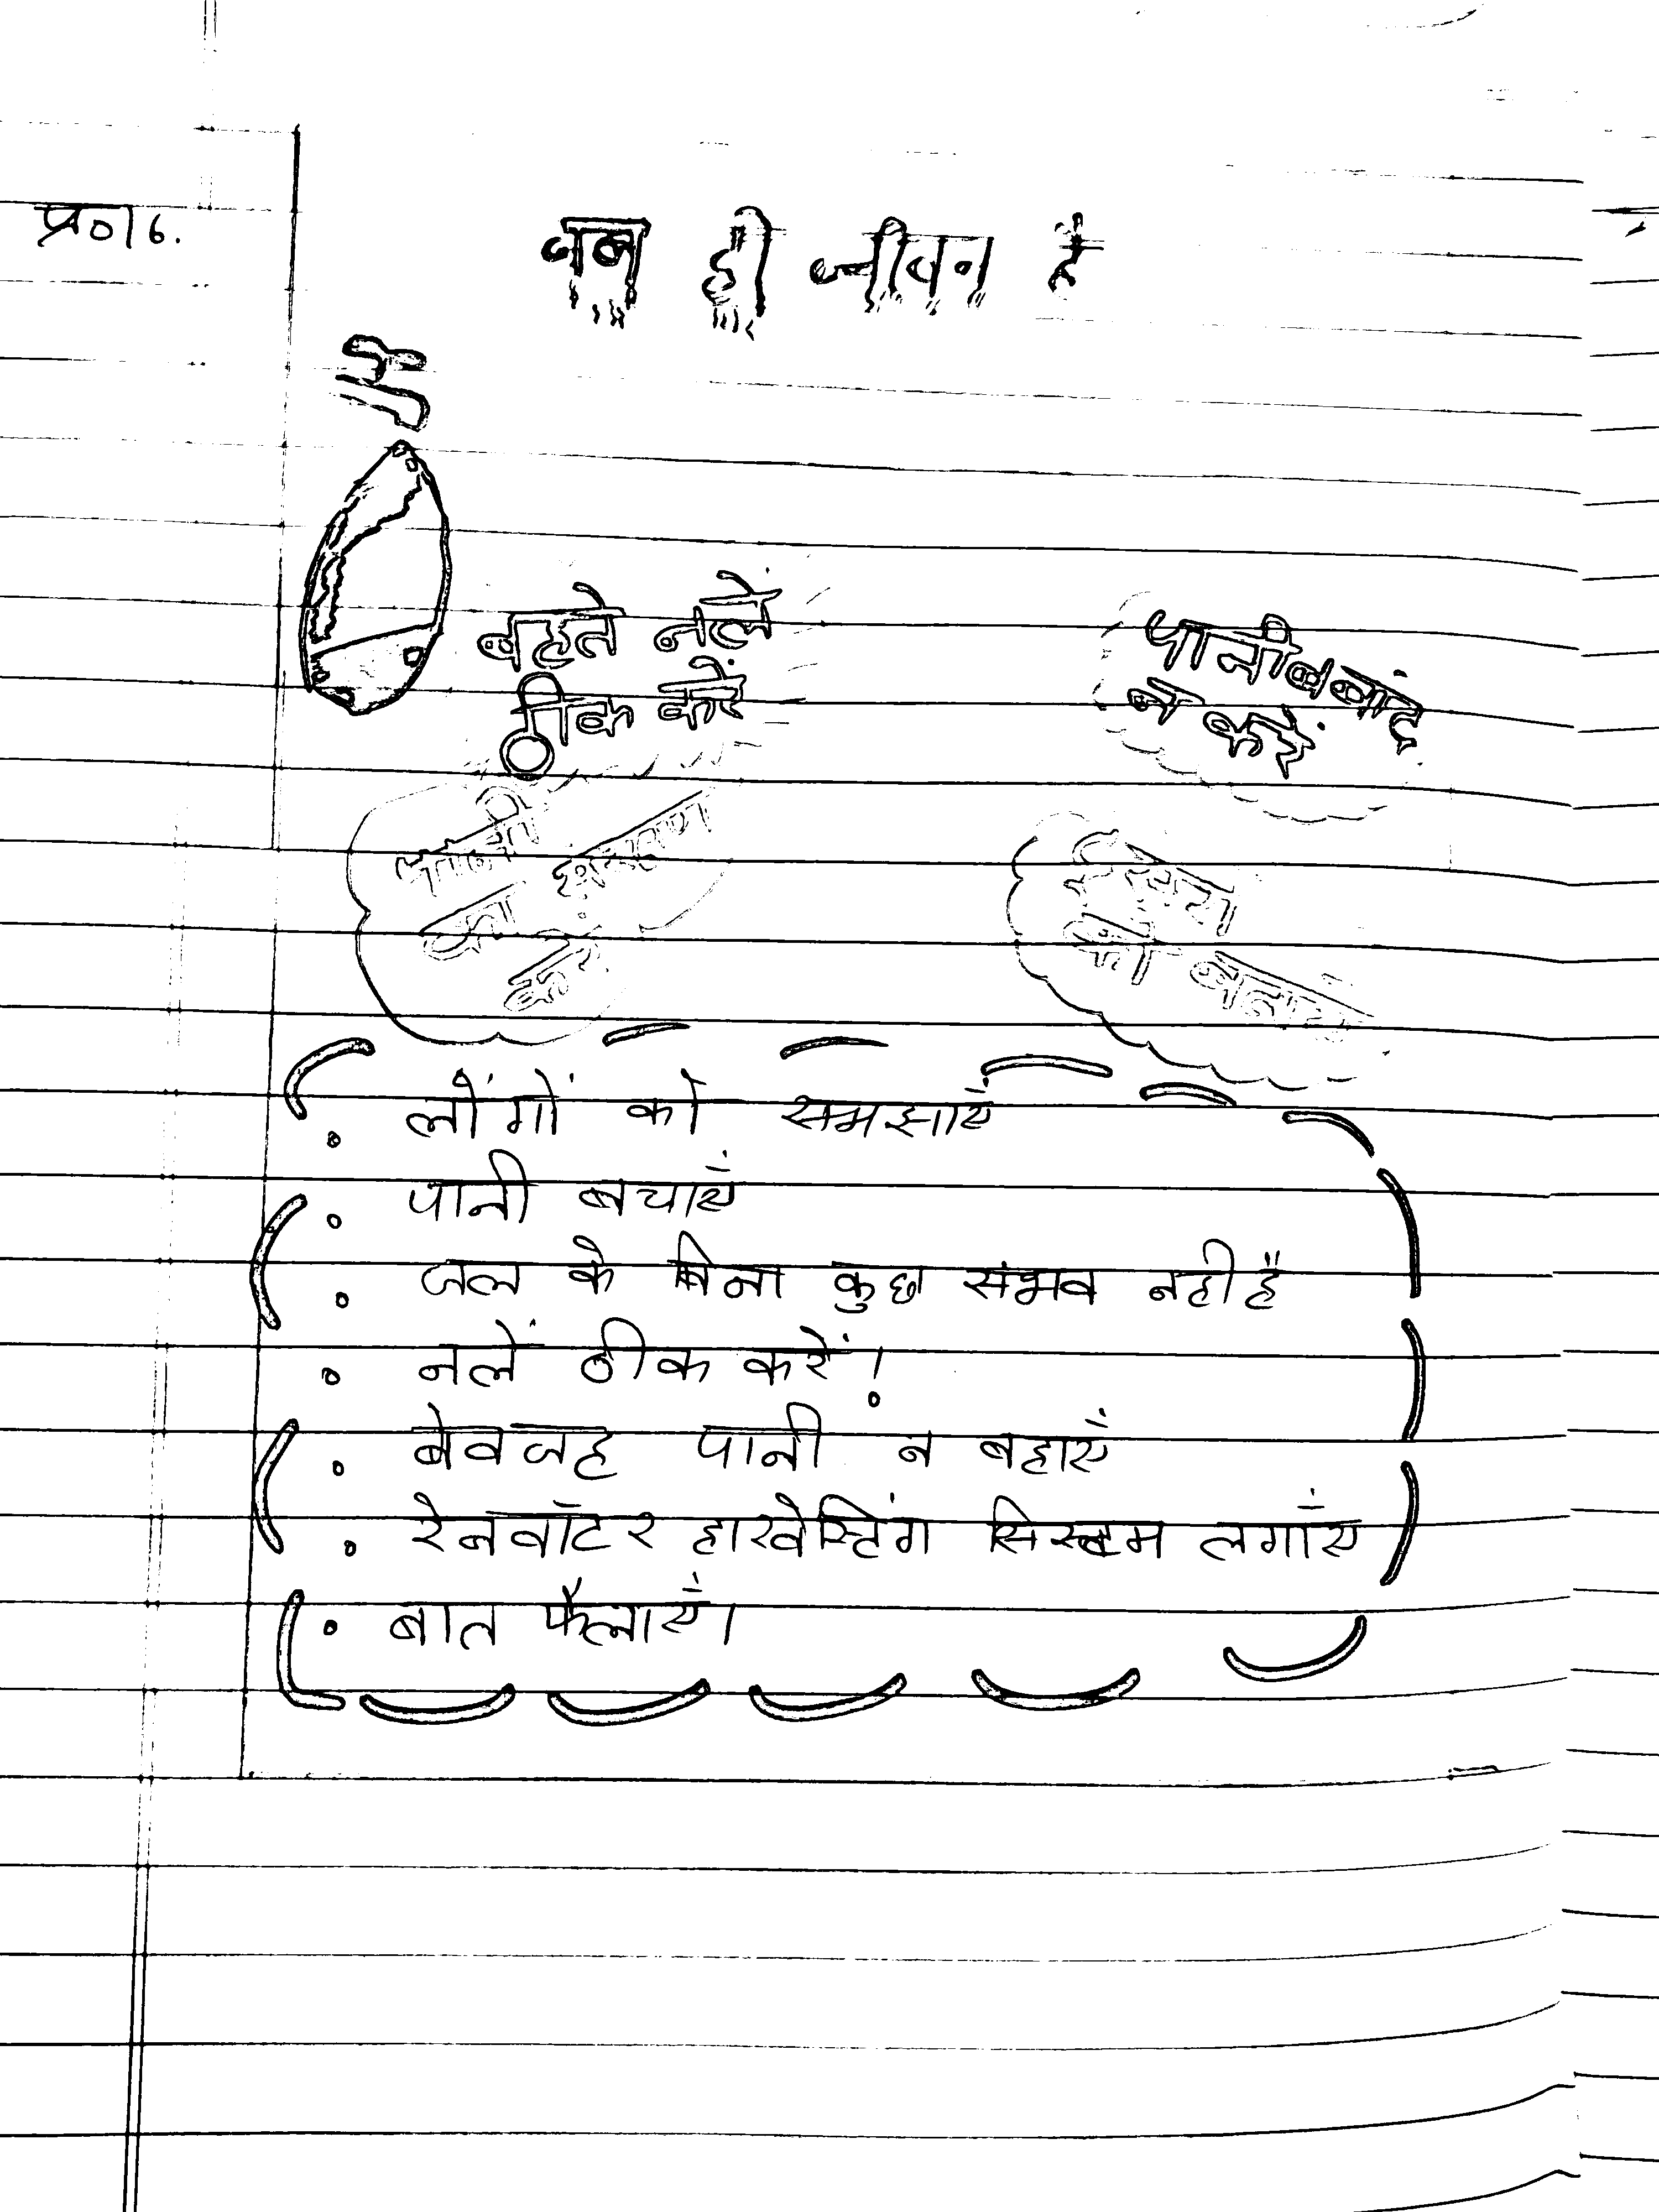 प्र०16.
जल ही जीवन है
बहते नलें
ठीक करें
पानी बर्बाद
न करें
पानी
का संरक्षण
करें
को बताएं
लोंगों को समझाएं
पानी बचाएं
जल के बिना कुछ संभव नही है
नलें ठीक करें!
बेवजह पानी न बहाएं
रेनवॉटर हारवेस्टिंग सिस्टम लगाएं
बात फैलाएं।